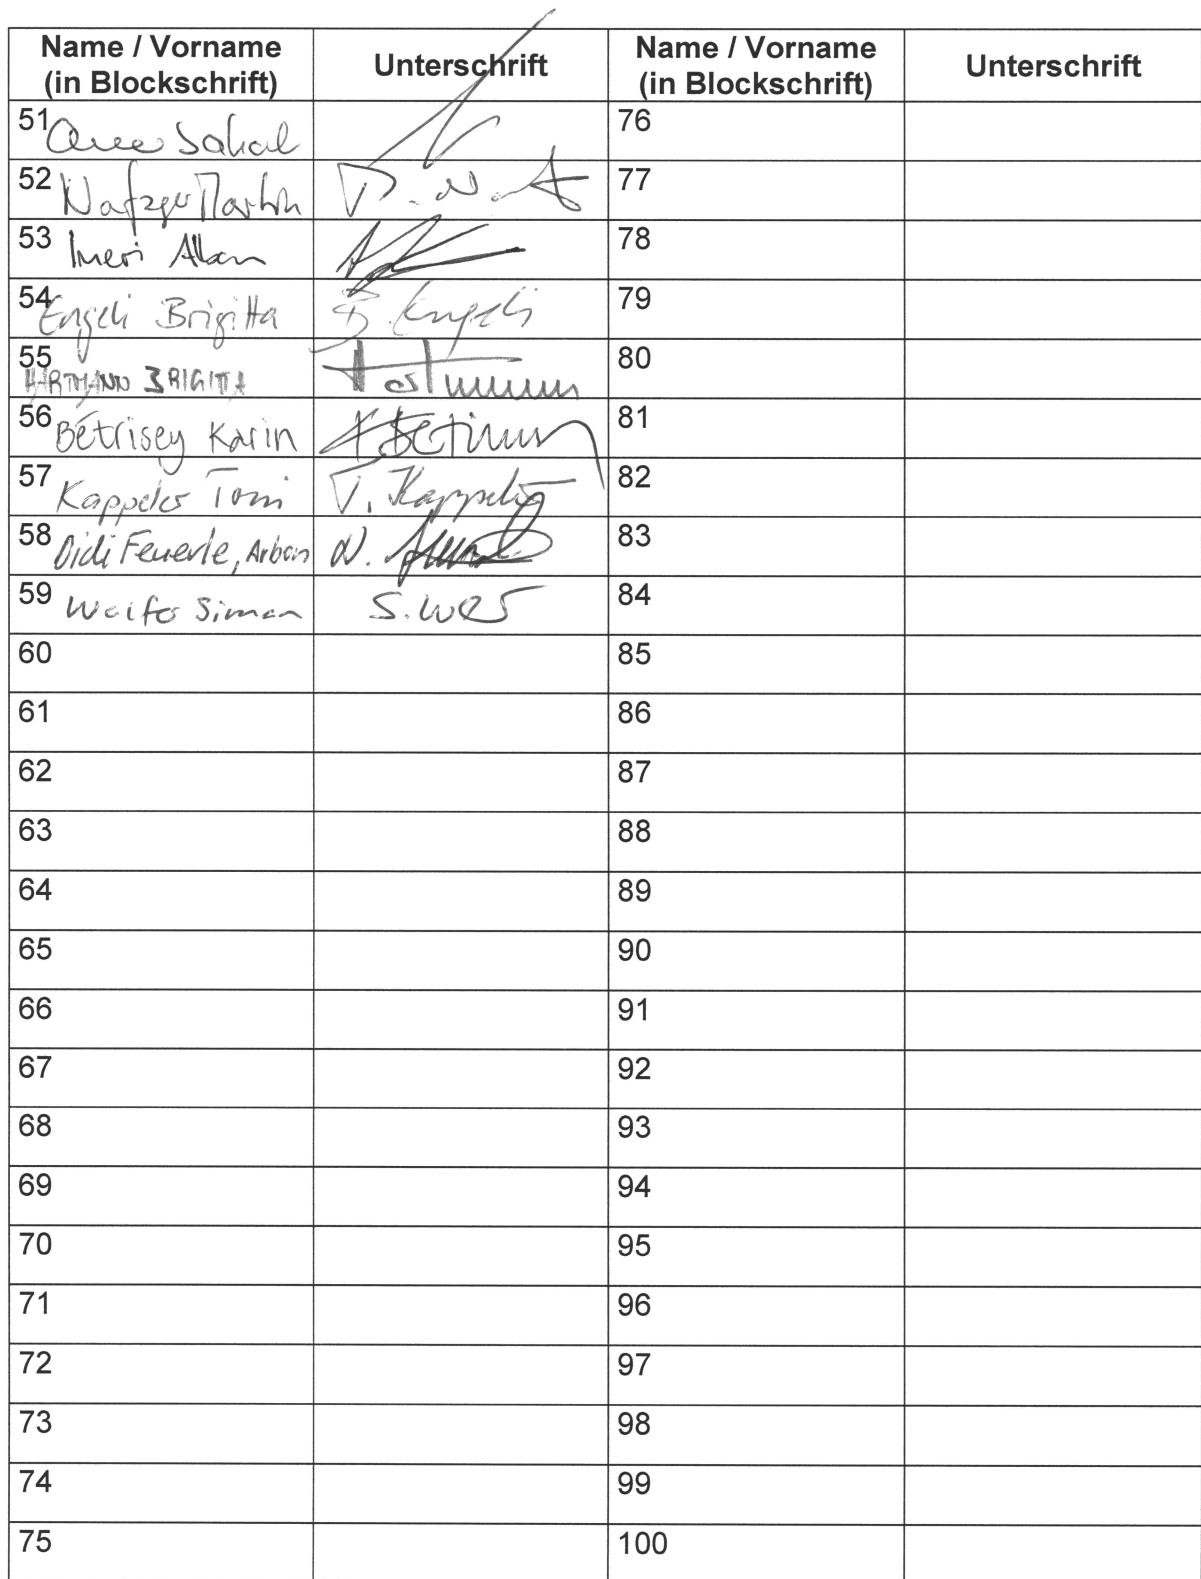 Name / Vorname
(in Blockschrift)
Unterschrift
Name / Vorname
(in Blockschrift)
Unterschrift
51
76
52 Nafzger Martin
77
53 Imeri Alban
78
54 Engeli Brigitta B. Engeli
79
55 HARTMANN BRIGITTA
80
56 Bétrisey Karin
81
57 Kappeler Toni T. Kappeler
82
58 Didi Feuerle, Arbon
83
59 Simon
84
60
85
61
86
62
87
63
88
64
89
65
90
66
91
67
92
68
93
69
94
70
95
71
96
72
97
73
98
74
99
75
100